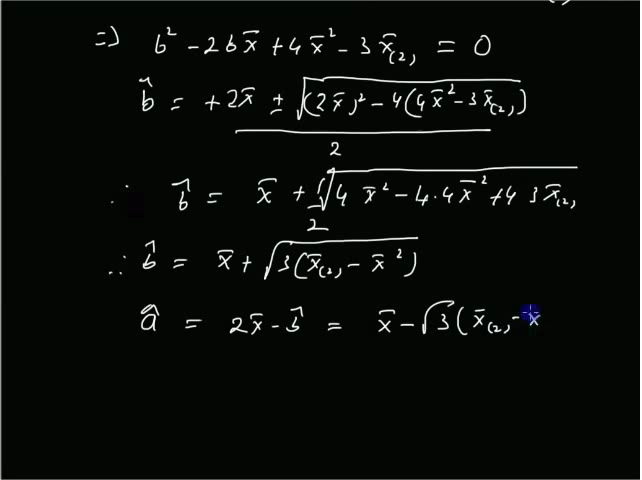 ⇒) b² − 2b x̄ + 4x̄² − 3x̄₍₂₎ = 0
b̂ = +2x̄ ± √((2x̄)² − 4(4x̄² − 3x̄₍₂₎)) / 2
∴ b̂ = x̄ + 1/2 √(4 x̄² − 4·4x̄² + 4 3x̄₍₂₎)
∴ b̂ = x̄ + √(3(x̄₍₂₎ − x̄²))
â = 2x̄ − b̂ = x̄ − √3(x̄₍₂₎ − x̄